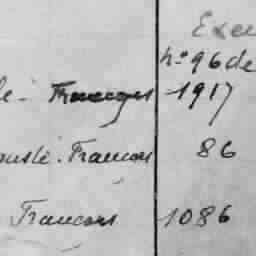 Exer
nº 96 de
le - François 1917
ousle. Francois 86
Francois 1086